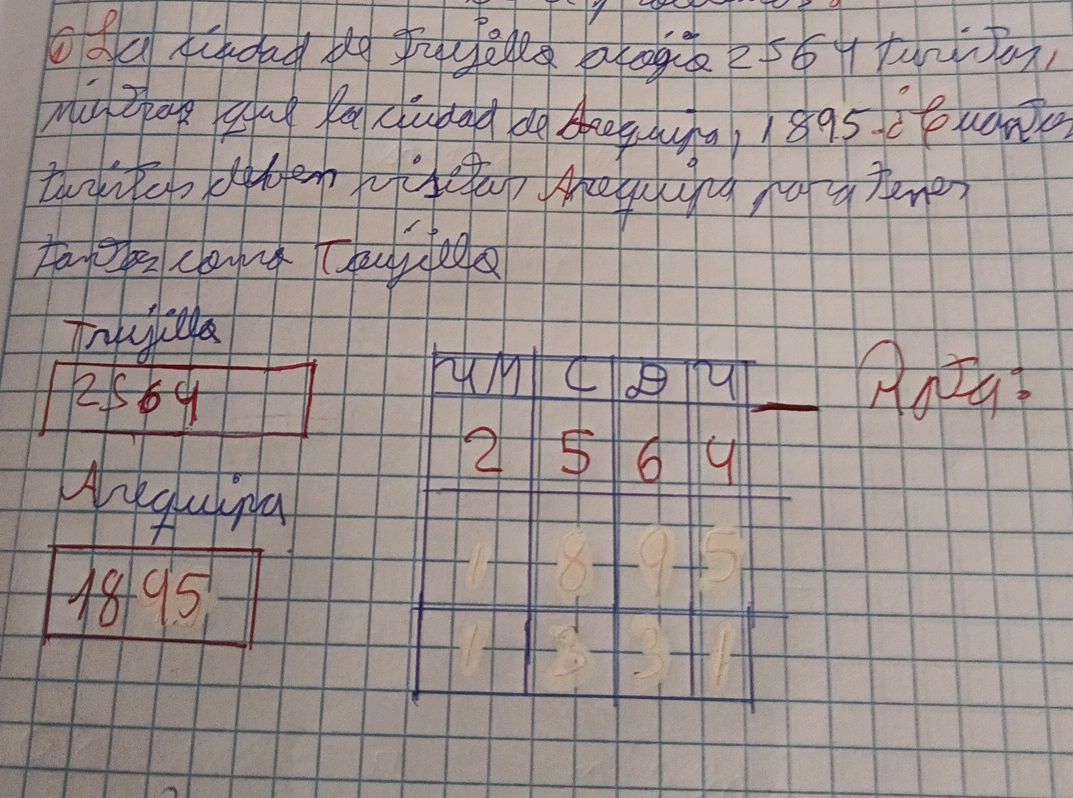 ① La ciudad de Trujillo acogio 2564 turistas,
mintras que la ciudad de Arequipa, 1895. ¿Cuantos
turistas deben visitar Arequipa para tener
tantos como Trujillo
Trujillo
2564
UM C D U — Rpta:
2 5 6 4
Arequipa
1895
1 8 9 5
1 3 3 1